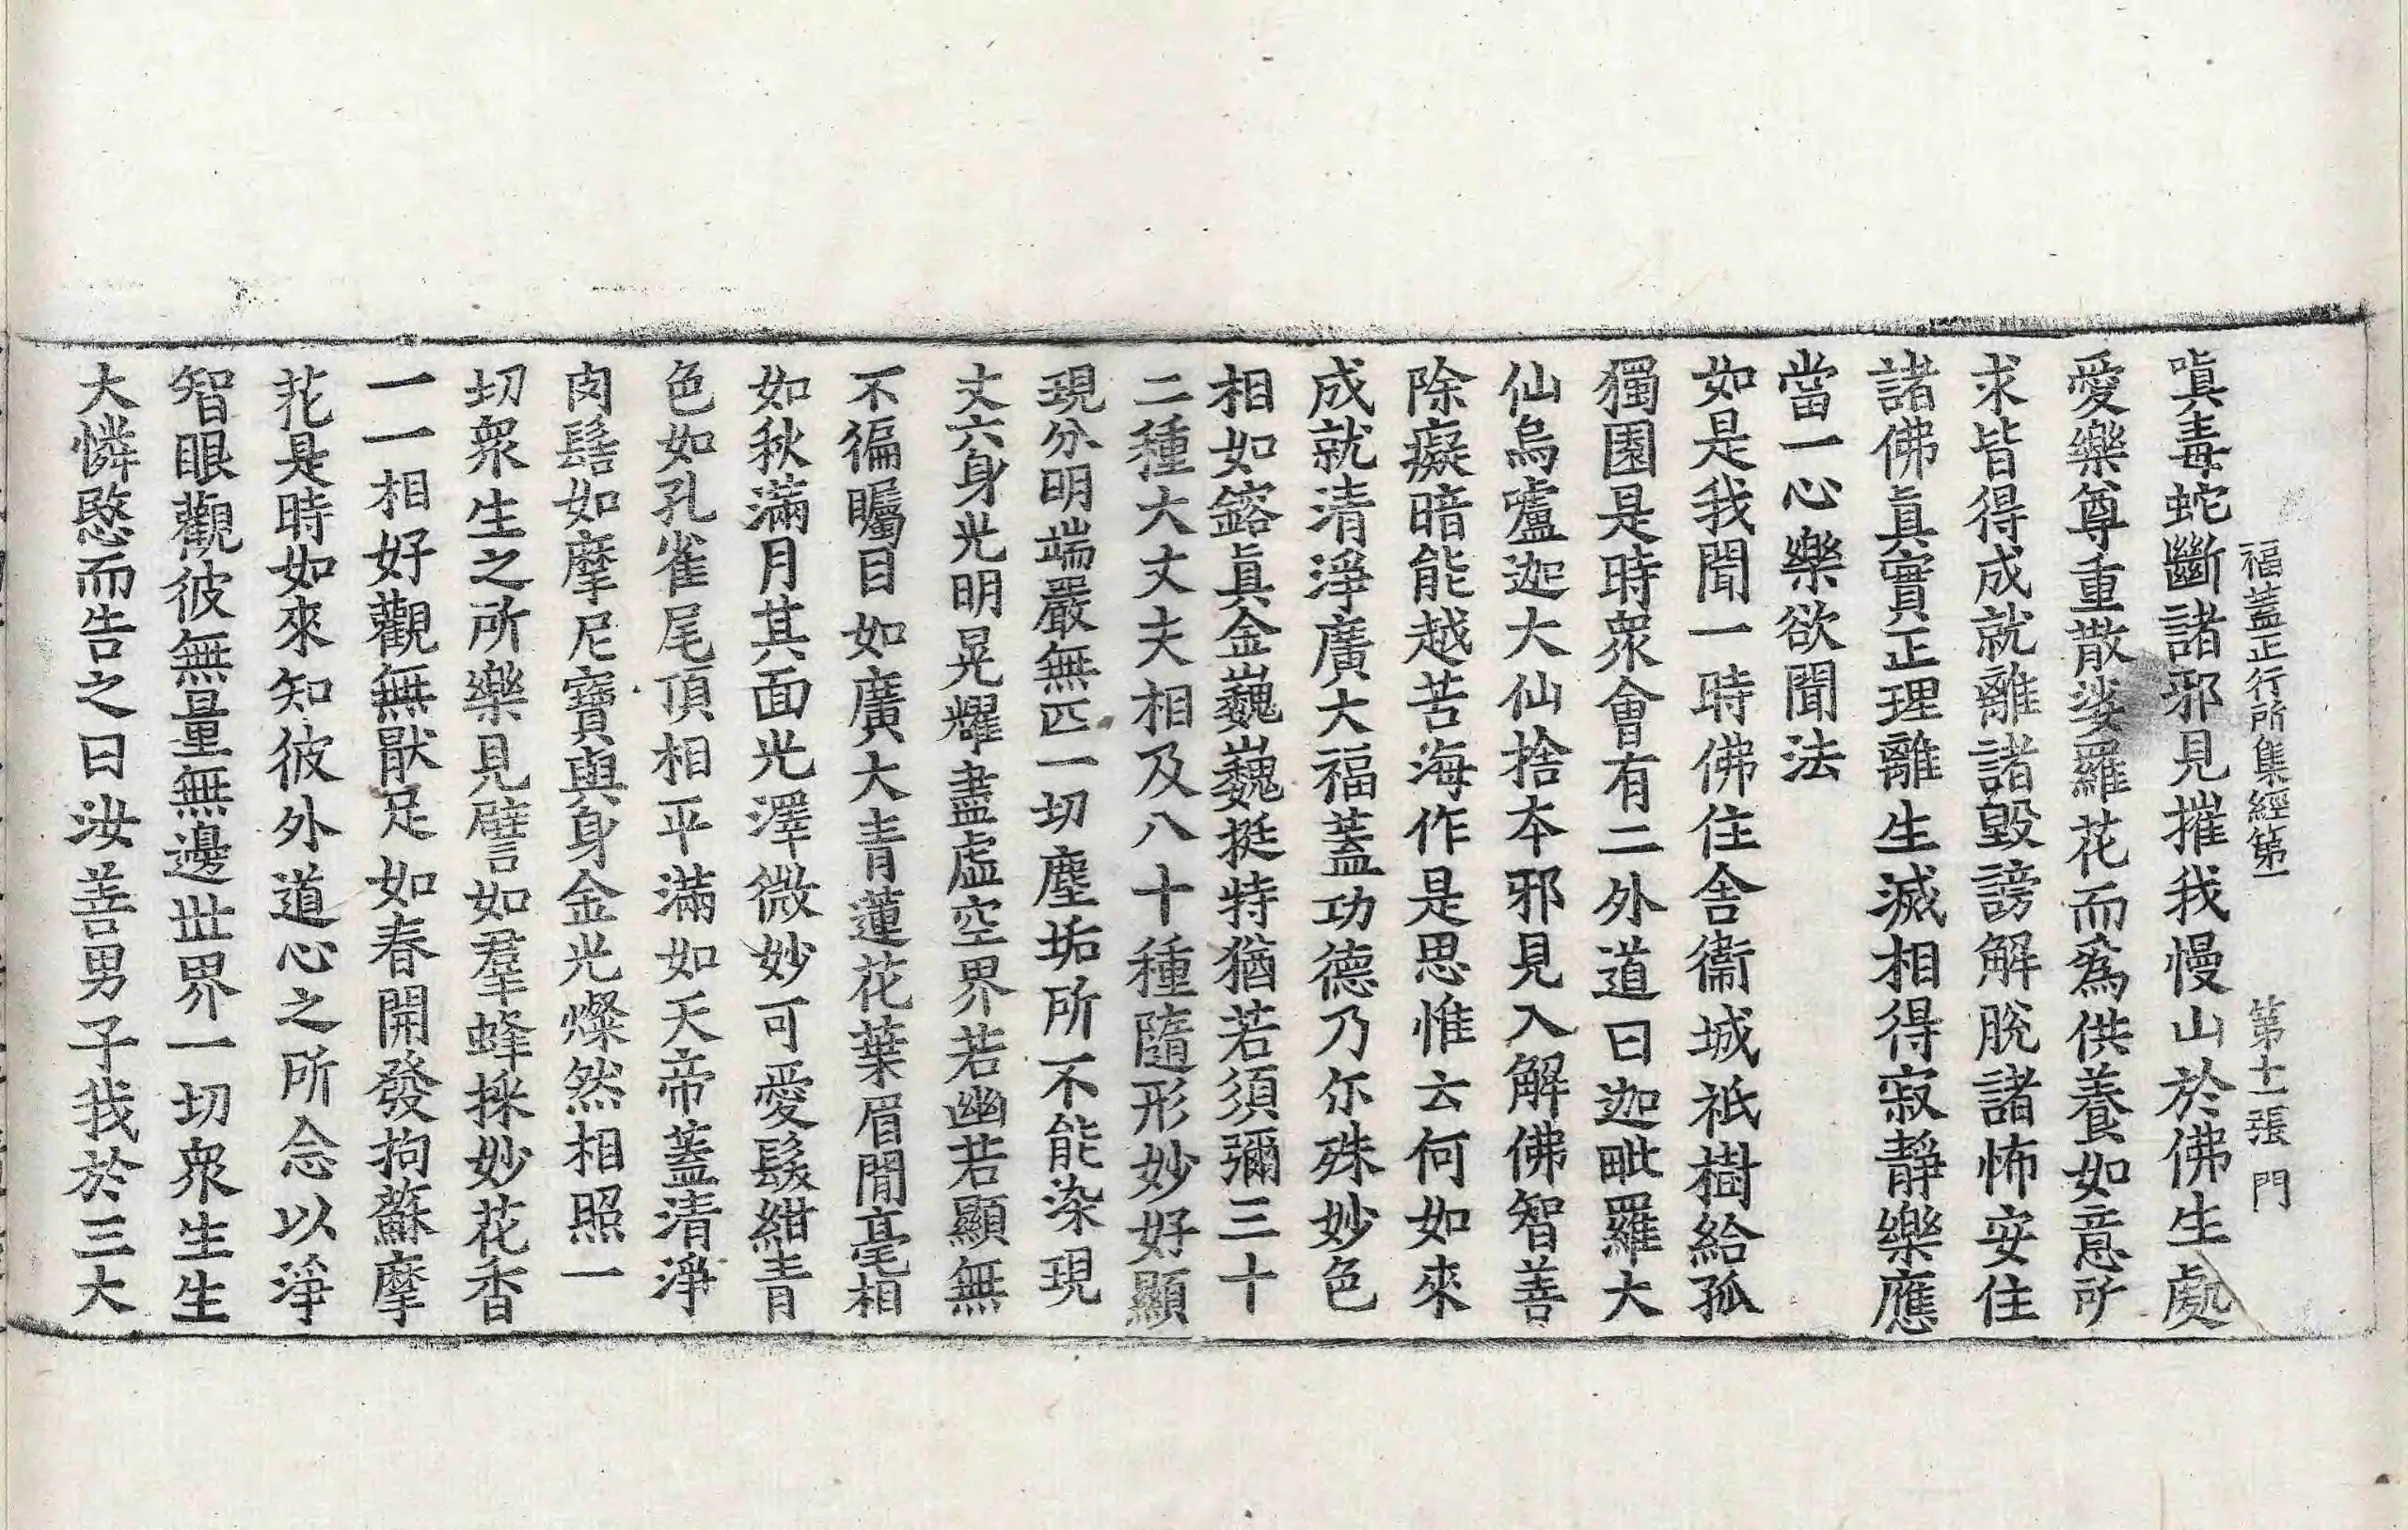 福蓋正行所集經第一　第十一張　門
嗔毒蛇斷諸邪見摧我慢山於佛生處
愛樂尊重散娑羅花而爲供養如意所
求皆得成就離諸毀謗解脫諸怖安住
諸佛眞實正理離生滅相得寂靜樂應
當一心樂欲聞法
如是我聞一時佛住舍衞城祇樹給孤
獨園是時衆會有二外道曰迦毗羅大
仙烏盧迦大仙捨本邪見入解佛智善
除癡暗能越苦海作是思惟云何如來
成就清淨廣大福蓋功德乃尒殊妙色
相如鎔眞金巍巍挺特猶若須彌三十
二種大丈夫相及八十種隨形妙好顯
現分明端嚴無匹一切塵垢所不能染現
丈六身光明晃耀盡虛空界若幽若顯無
不徧矚目如廣大青蓮花葉眉間毫相
如秋滿月其面光澤微妙可愛髮紺青
色如孔雀尾頂相平滿如天帝蓋清淨
肉髻如摩尼寶與身金光燦然相照一
切衆生之所樂見譬如羣蜂採妙花香
一一相好觀無猒足如春開發拘蘇摩
花是時如來知彼外道心之所念以淨
智眼觀彼無量無邊世界一切衆生生
大憐愍而告之曰汝善男子我於三大